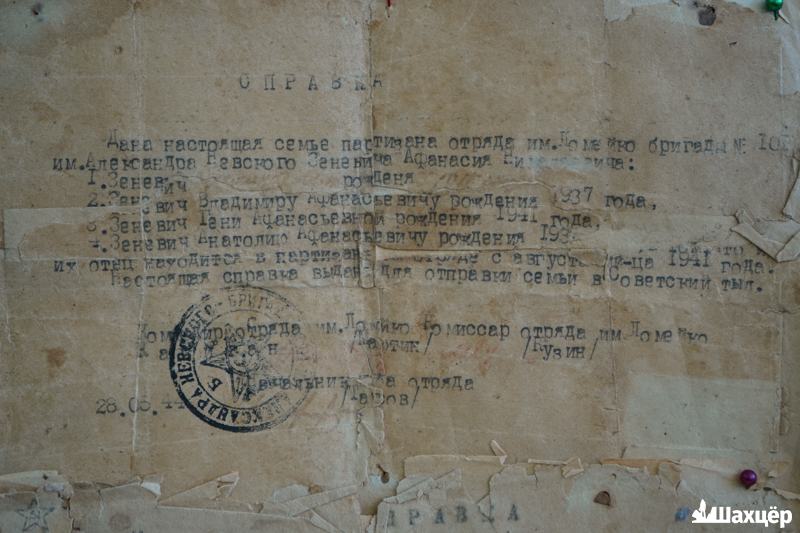 СПРАВКА
Дана настоящая семье партизана отряда им.Ломейко бригады № 101
им.Александра Невского Зеневича Афанасия Николаевича:
1.Зеневич рождения
2.Зеневич Владимиру Афанасьевичу рождения 1937 года,
3.Зеневич Гени Афанасьевной рождения 1941 года,
4.Зеневич Анатолию Афанасьевичу рождения 193
их отец находится в отряде с августа м-ца 1941 года.
Настоящая справка выдана для отправки семьи в Советский тыл.
Командир отряда им.Ломейко Комиссар отряда им Ломейко
/Кузин/
Начальник отряда
28.06.44
АЛЕКСАНДРА НЕВСКОГО - БРИГАДА
РАВКА
Шахцёр